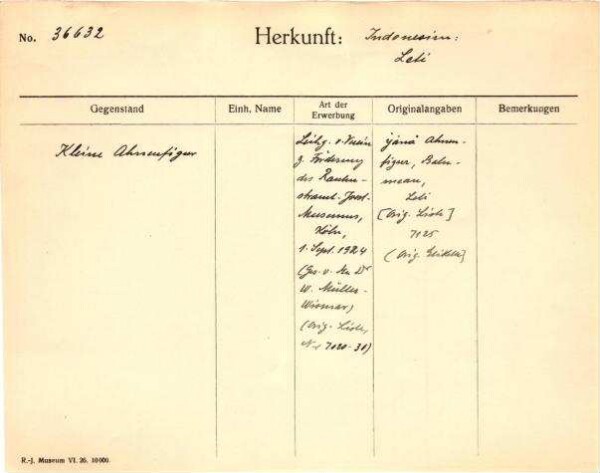 No. 36632
Herkunft: Indonesien:
Leti
Gegenstand
Einh. Name
Art der
Erwerbung
Originalangaben
Bemerkungen
Kleine Ahnenfigur
Leihg. v. Verein
z. Förderung
des Rauten-
strauch-Joest-
Museums,
Köln,
1. Sept. 1924
(Ges. v. Dr
W. Müller-
Wismar)
(Orig. Liste,
No 7020-31)
jánä Ahnen-
figur,
Leti
[Orig. Liste]
7025
(Orig. Etikett)
R.-J. Museum VI. 26. 10000.